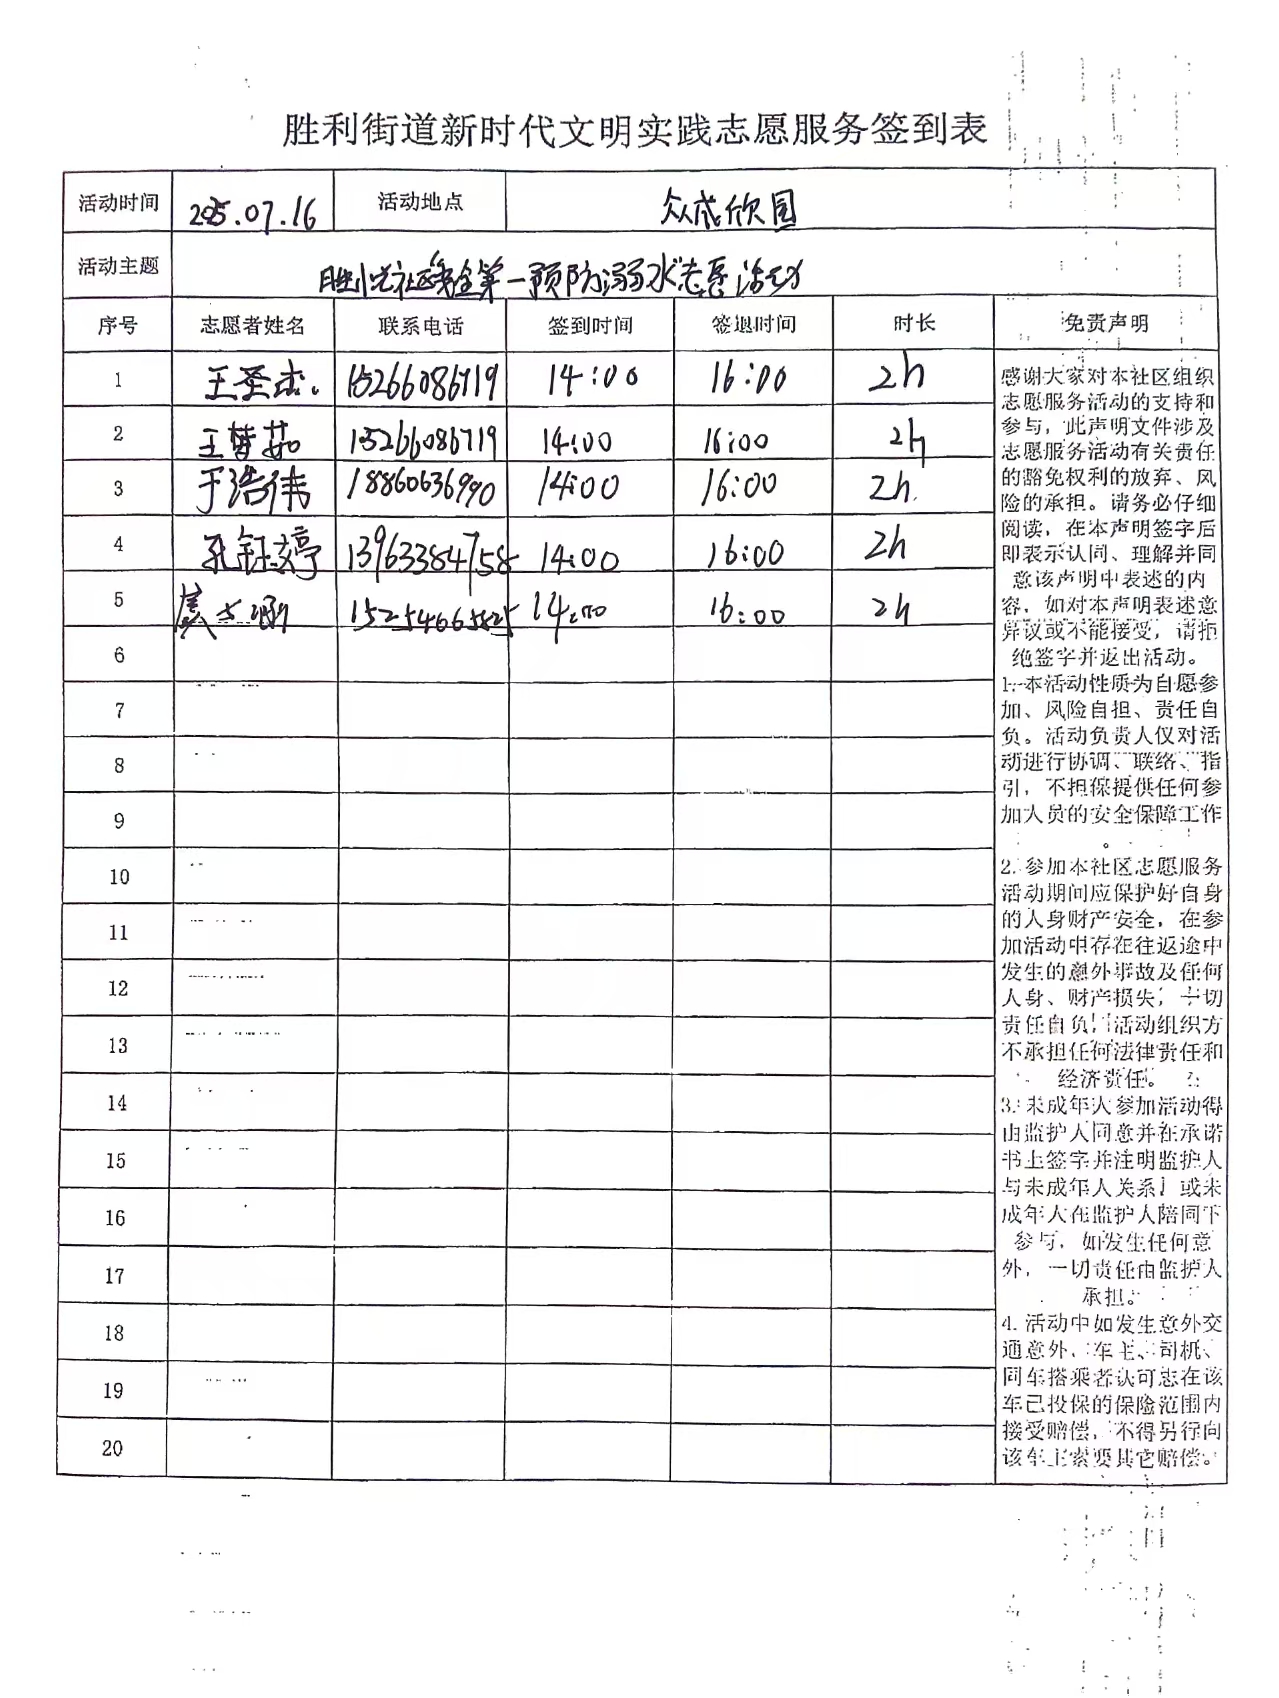 胜利街道新时代文明实践志愿服务签到表
活动时间 2025.07.16 活动地点 众成欣园
活动主题 社区安全第一预防溺水志愿活动
序号 志愿者姓名 联系电话 签到时间 签退时间 时长 免责声明
1 王圣杰 15266086719 14:00 16:00 2h
2 王梦茹 15266086719 14:00 16:00 2h
3 于浩伟 18860636990 14:00 16:00 2h
4 孔钰婷 13963384758 14:00 16:00 2h
5 14:00 16:00 2h
6
7
8
9
10
11
12
13
14
15
16
17
18
19
20
感谢大家对本社区组织
志愿服务活动的支持和
参与,此声明文件涉及
志愿服务活动有关责任
的豁免权利的放弃、风
险的承担。请务必仔细
阅读,在本声明签字后
即表示认同、理解并同
意该声明中表述的内
容,如对本声明表述意
异议或不能接受,请拒
绝签字并返出活动。
1.本活动性质为自愿参
加、风险自担、责任自
负。活动负责人仅对活
动进行协调、联络、指
引,不担保提供任何参
加人员的安全保障工作
。
2.参加本社区志愿服务
活动期间应保护好自身
的人身财产安全,在参
加活动中存在往返途中
发生的意外事故及任何
人身、财产损失,一切
责任自负,活动组织方
不承担任何法律责任和
经济责任。
3.未成年人参加活动得
由监护人同意并在承诺
书上签字并注明监护人
与未成年人关系,或未
成年人在监护人陪同下
参与,如发生任何意
外,一切责任由监护人
承担。
4.活动中如发生意外交
通意外,车主、司机、
同车搭乘者认可志在该
车已投保的保险范围内
接受赔偿,不得另行向
该车主索要其它赔偿。